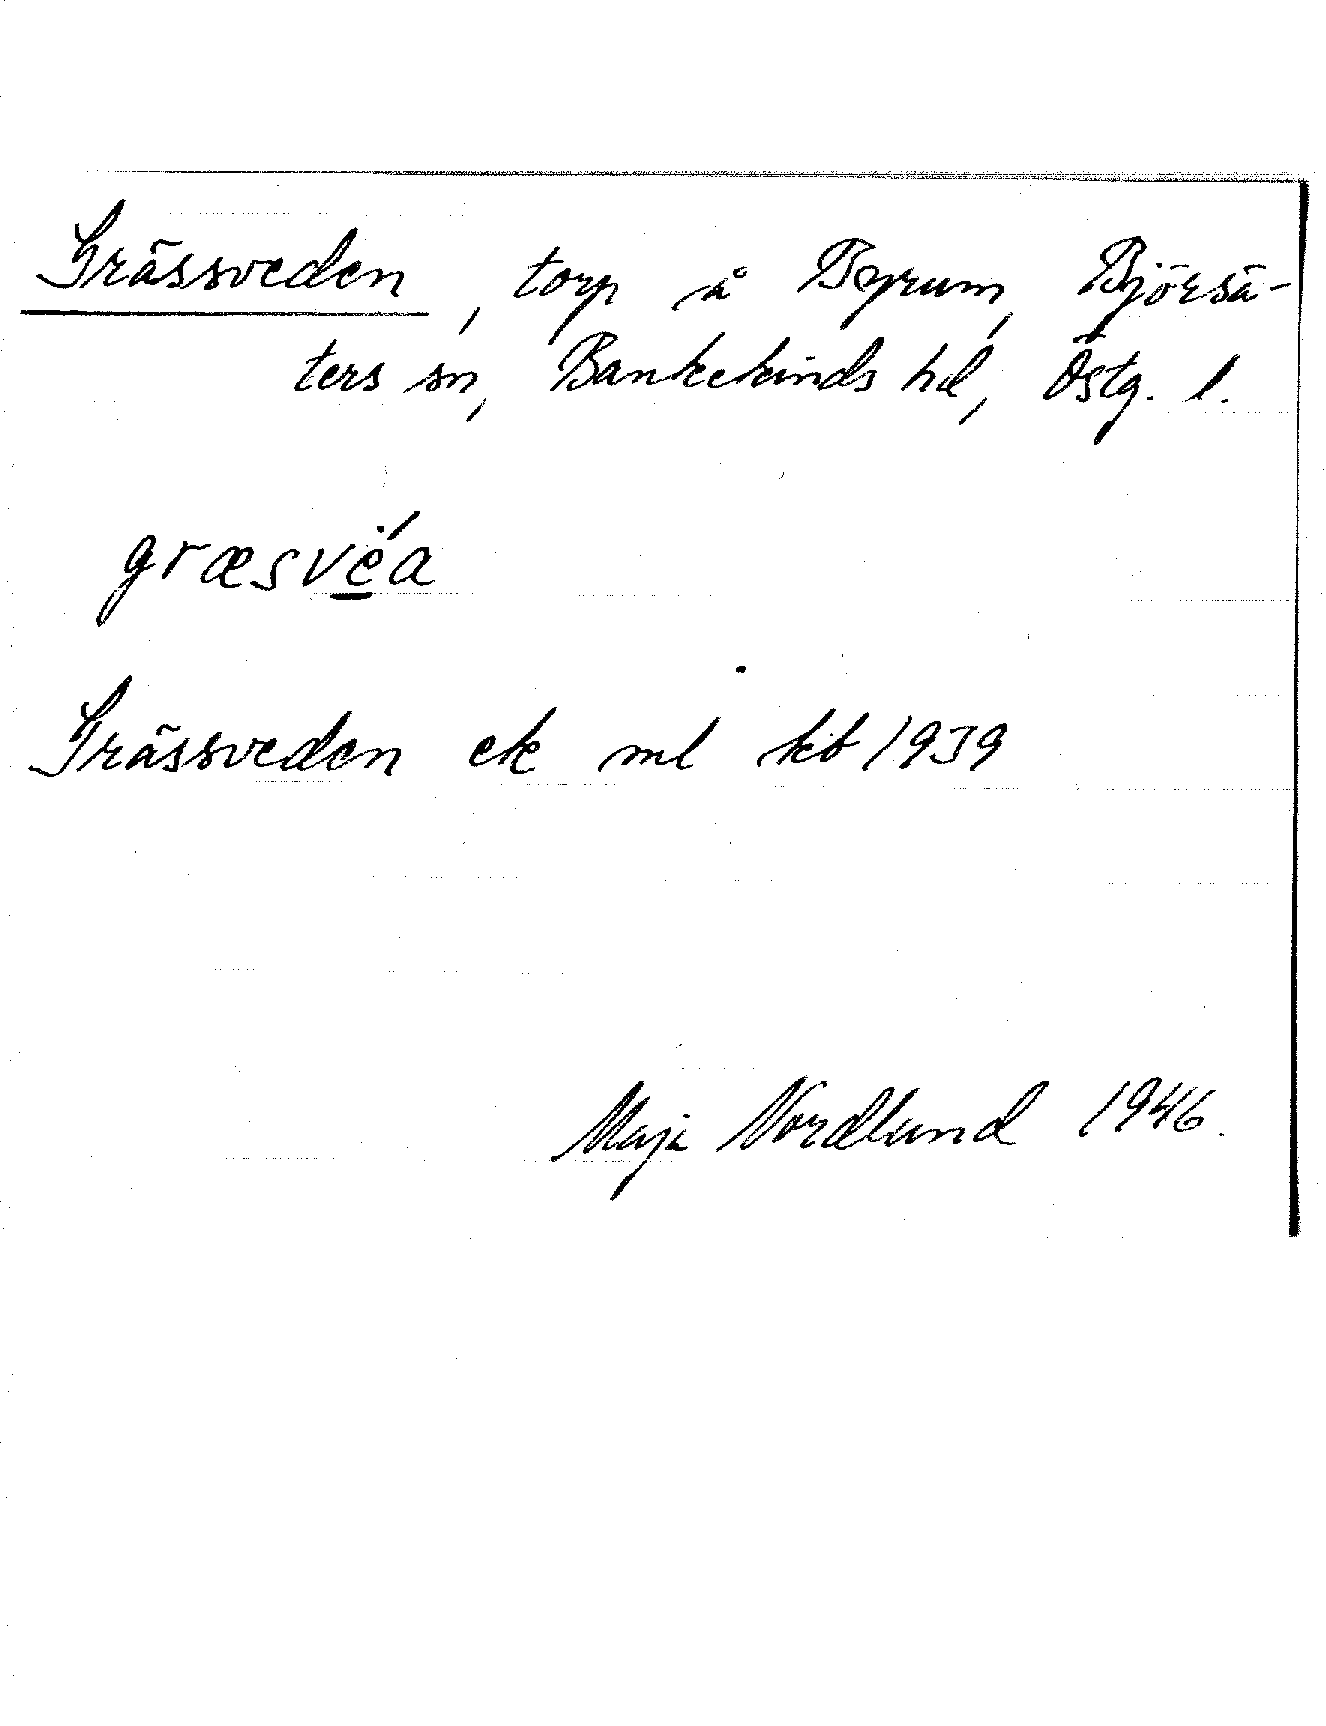 Grässveden, torp å Byrum, Björsä-
ters sn, Bankekinds hd, Östg. l.
græsvė́a
Grässveden ek ml kb 1939
Maja Nordlund 1946.